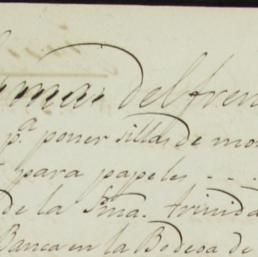 del fren
pª poner sillas de mon
para papeles - - -
de la Sma. trinida
Banca en la Bodega de